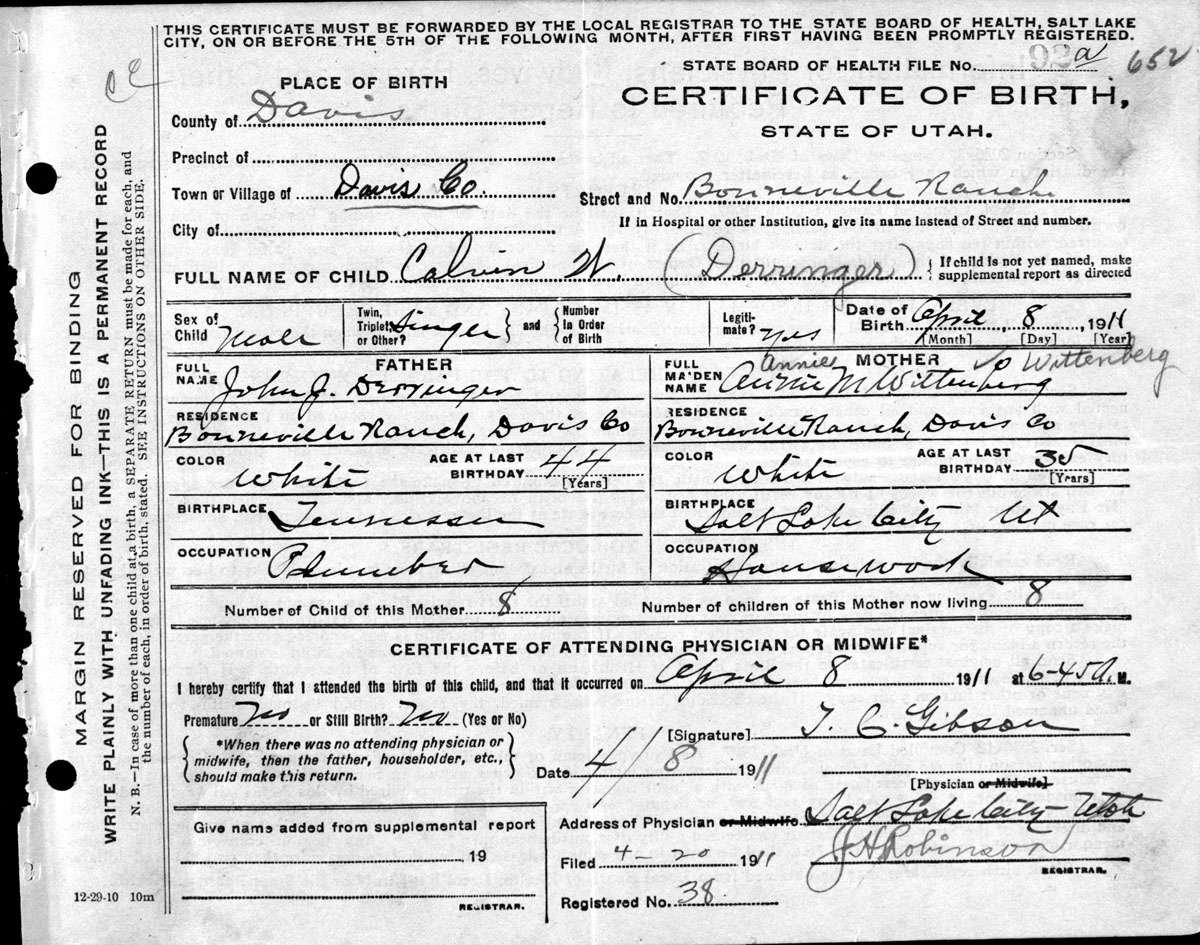 THIS CERTIFICATE MUST BE FORWARDED BY THE LOCAL REGISTRAR TO THE STATE BOARD OF HEALTH, SALT LAKE
CITY, ON OR BEFORE THE 5TH OF THE FOLLOWING MONTH, AFTER FIRST HAVING BEEN PROMPTLY REGISTERED.
MARGIN RESERVED FOR BINDING
WRITE PLAINLY WITH UNFADING INK—THIS IS A PERMANENT RECORD
N. B.—In case of more than one child at a birth, a SEPARATE RETURN must be made for each, and
the number of each, in order of birth, stated. SEE INSTRUCTIONS ON OTHER SIDE.
STATE BOARD OF HEALTH FILE No. 92 a 652
PLACE OF BIRTH
CERTIFICATE OF BIRTH,
STATE OF UTAH.
County of Davis
Precinct of
Town or Village of Davis Co.
Street and No. Bonneville Ranch
If in Hospital or other Institution, give its name instead of Street and number.
City of
FULL NAME OF CHILD Calvin W. (Derringer) { If child is not yet named, make
supplemental report as directed
Sex of Child Male
Twin, Triplet, or Other? Singer } and { Number In Order of Birth
Legiti- mate? Yes
Date of Birth April 8, 1911
(Month) (Day) (Year)
FATHER
FULL NAME John J. Derringer
RESIDENCE
Bonneville Ranch, Davis Co
COLOR White AGE AT LAST BIRTHDAY 44 (Years)
BIRTHPLACE Tennessee
OCCUPATION Plumber
MOTHER
Annie Wittenberg
FULL MAIDEN NAME Annie M Wittenberg
RESIDENCE
Bonneville Ranch, Davis Co
COLOR White AGE AT LAST BIRTHDAY 35 (Years)
BIRTHPLACE Salt Lake City Ut
OCCUPATION Housework
Number of Child of this Mother 8 Number of children of this Mother now living 8
CERTIFICATE OF ATTENDING PHYSICIAN OR MIDWIFE*
I hereby certify that I attended the birth of this child, and that it occurred on April 8 1911 at 6-45 A. M.
Premature No or Still Birth? No (Yes or No)
{ *When there was no attending physician or
midwife, then the father, householder, etc.,
should make this return. }
[Signature] T. C. Gibson
Date 4/8 1911
[Physician or Midwife]
Give name added from supplemental report
19
REGISTRAR.
Address of Physician or Midwife Salt Lake City Utah
Filed 4-20 1911 J H Robinson
REGISTRAR.
Registered No. 38
12-29-10 10m